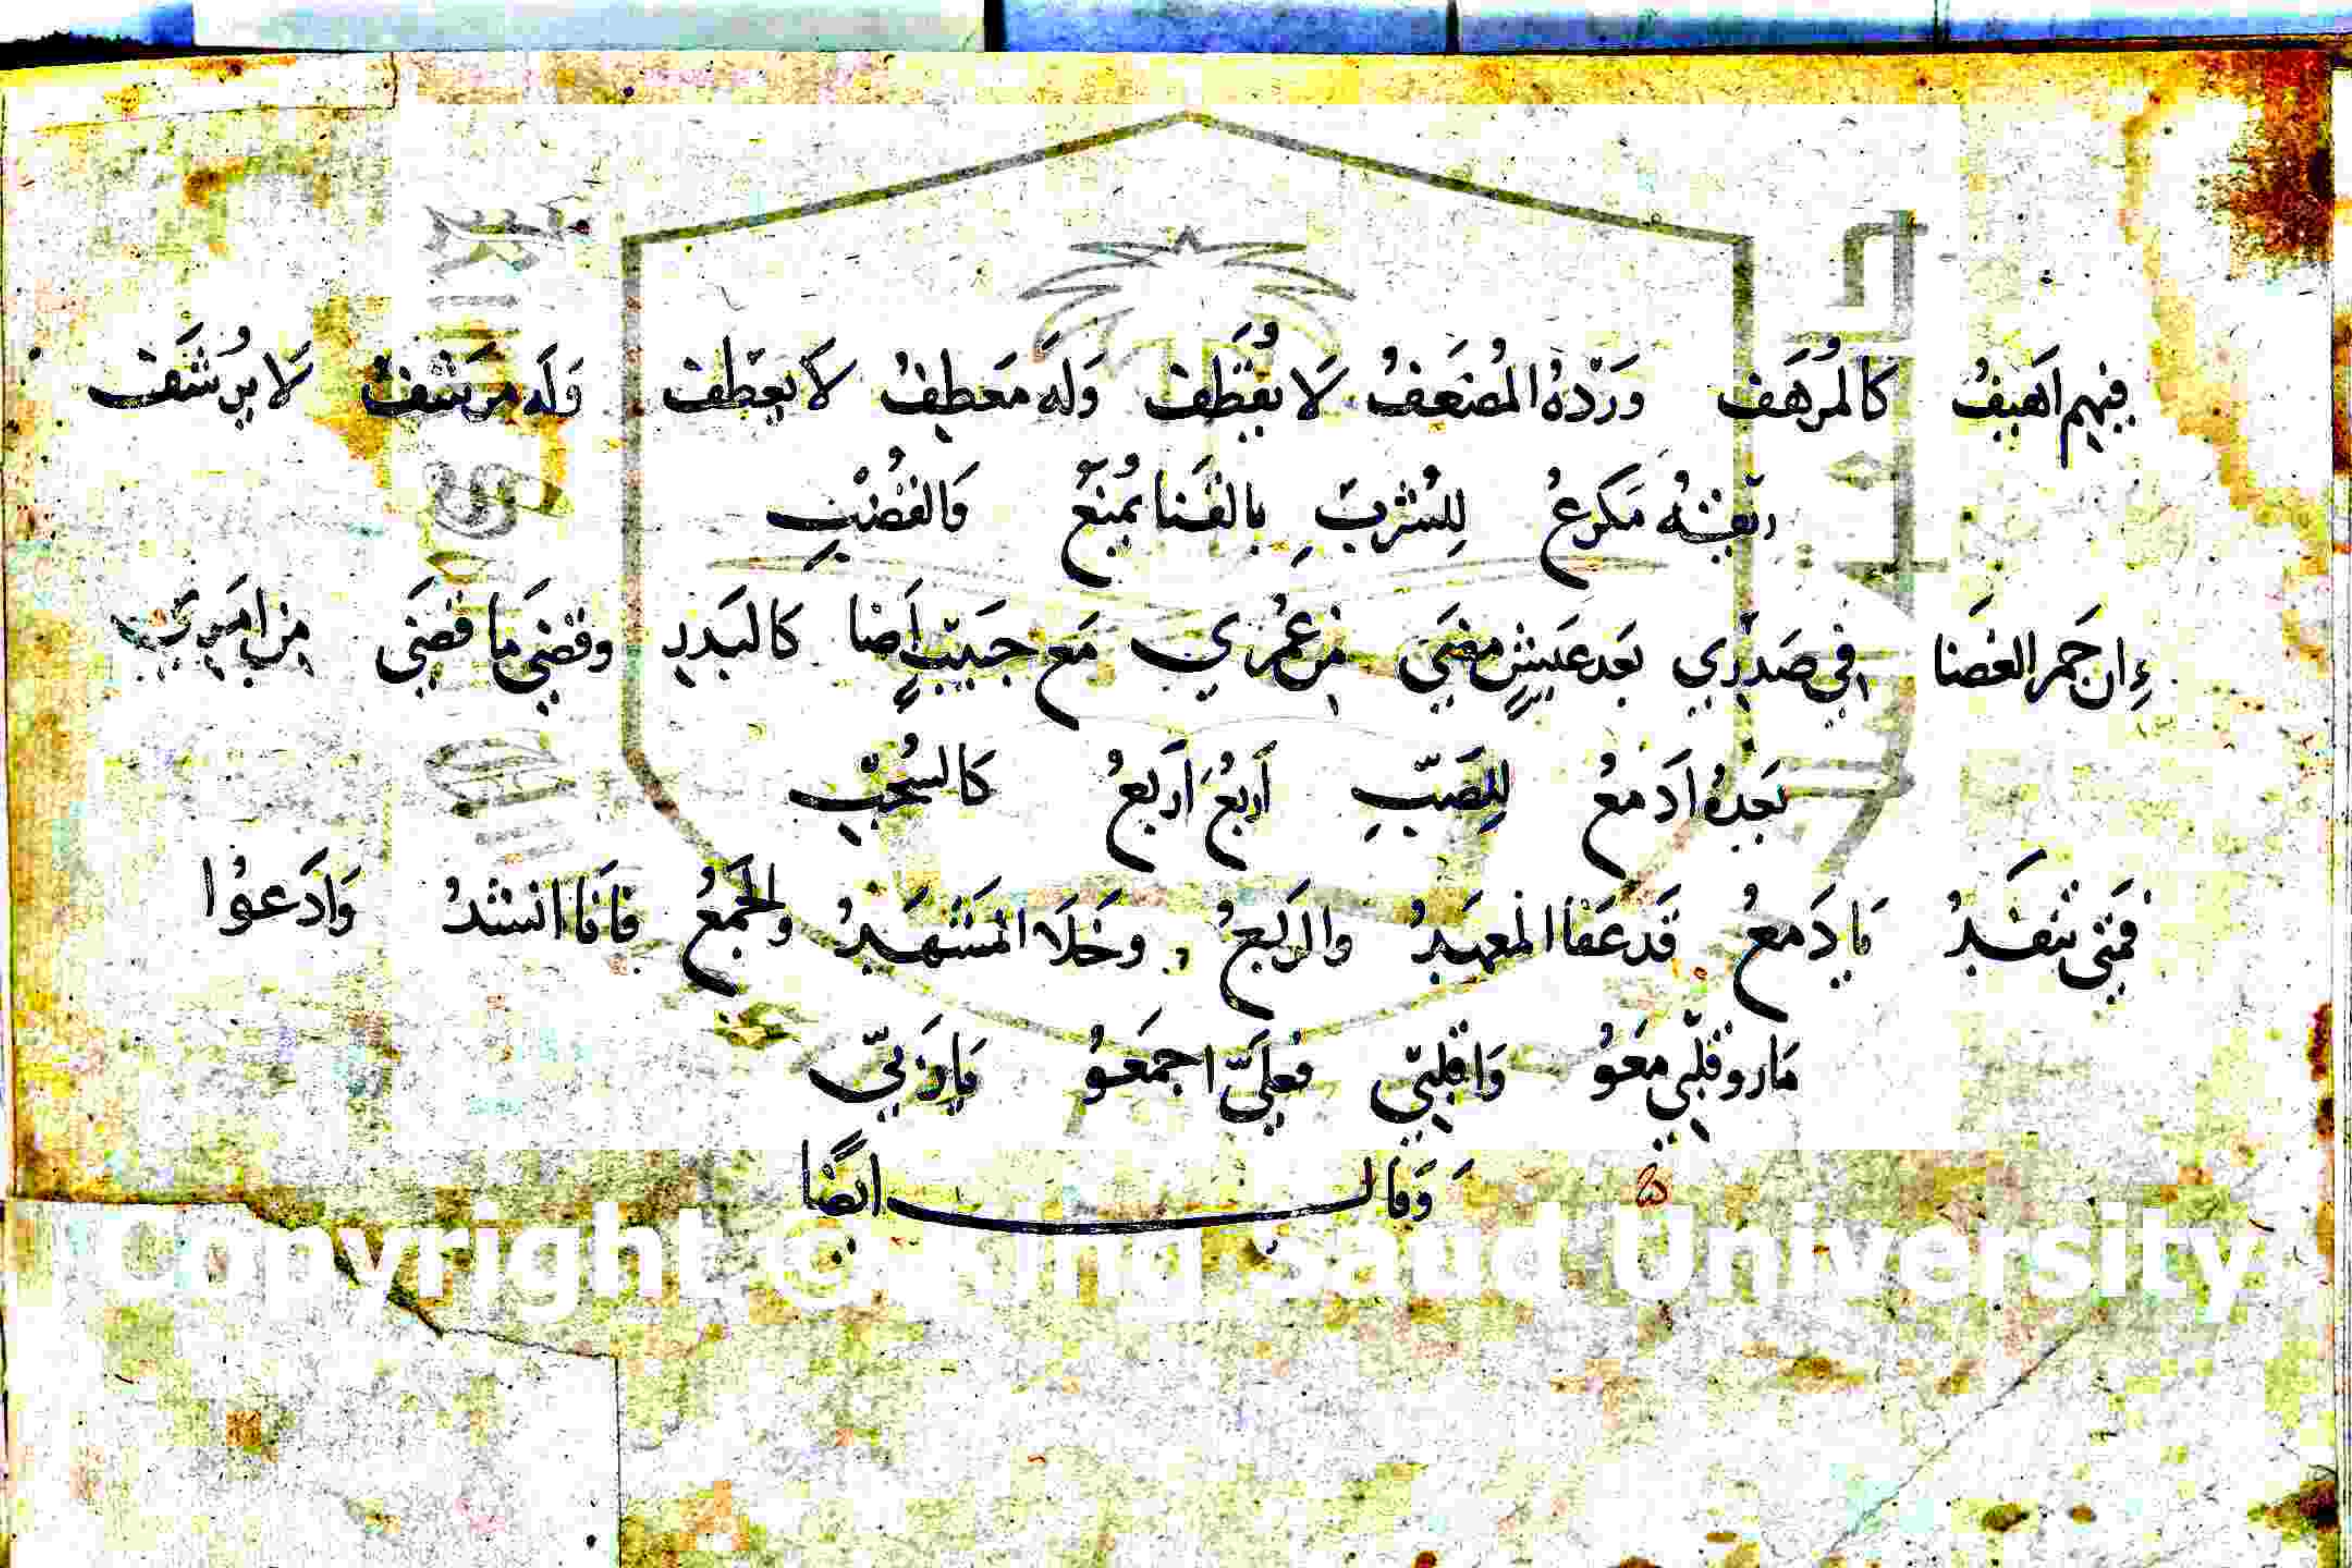 فيهم اَهيفُ كالمُرهَف وَرْدهُ المُضعَفُ لَا يُقطَف وَلَه مَعطِفُ لاَ يعطِف وَلَه مَرشفُ لَا يُرشَف
ريقتُه مَكرعُ لِلشُربَ بالقَنا يُمنَعُ وَالقُضْبِ
اِن جَمر الغَضَا في صَدرِي بَعد عَيشٍ مضَى من عمُري مَع حبَيبٍ اَضا كالبَدرِ وقضىَ مَا قضَى من اَمرِي
بَعدهُ اَدمعُ للِصَبِّ اَربعُ اَربعُ كالسُحْبِ
فمَتى تنفَدُ يا دَمعُ قَد عَفا المعهَدُ والرَبعُ وخَلَا المَشهَدُ والجَمعُ فَانَا انشدُ وَادَعوُا
مَا روقلّبي معَوُ وَاقلبيّ فعلَىَّ اجمَعوُ يارَبيّ
وَقال ايضًا
Copyright © King Saud University